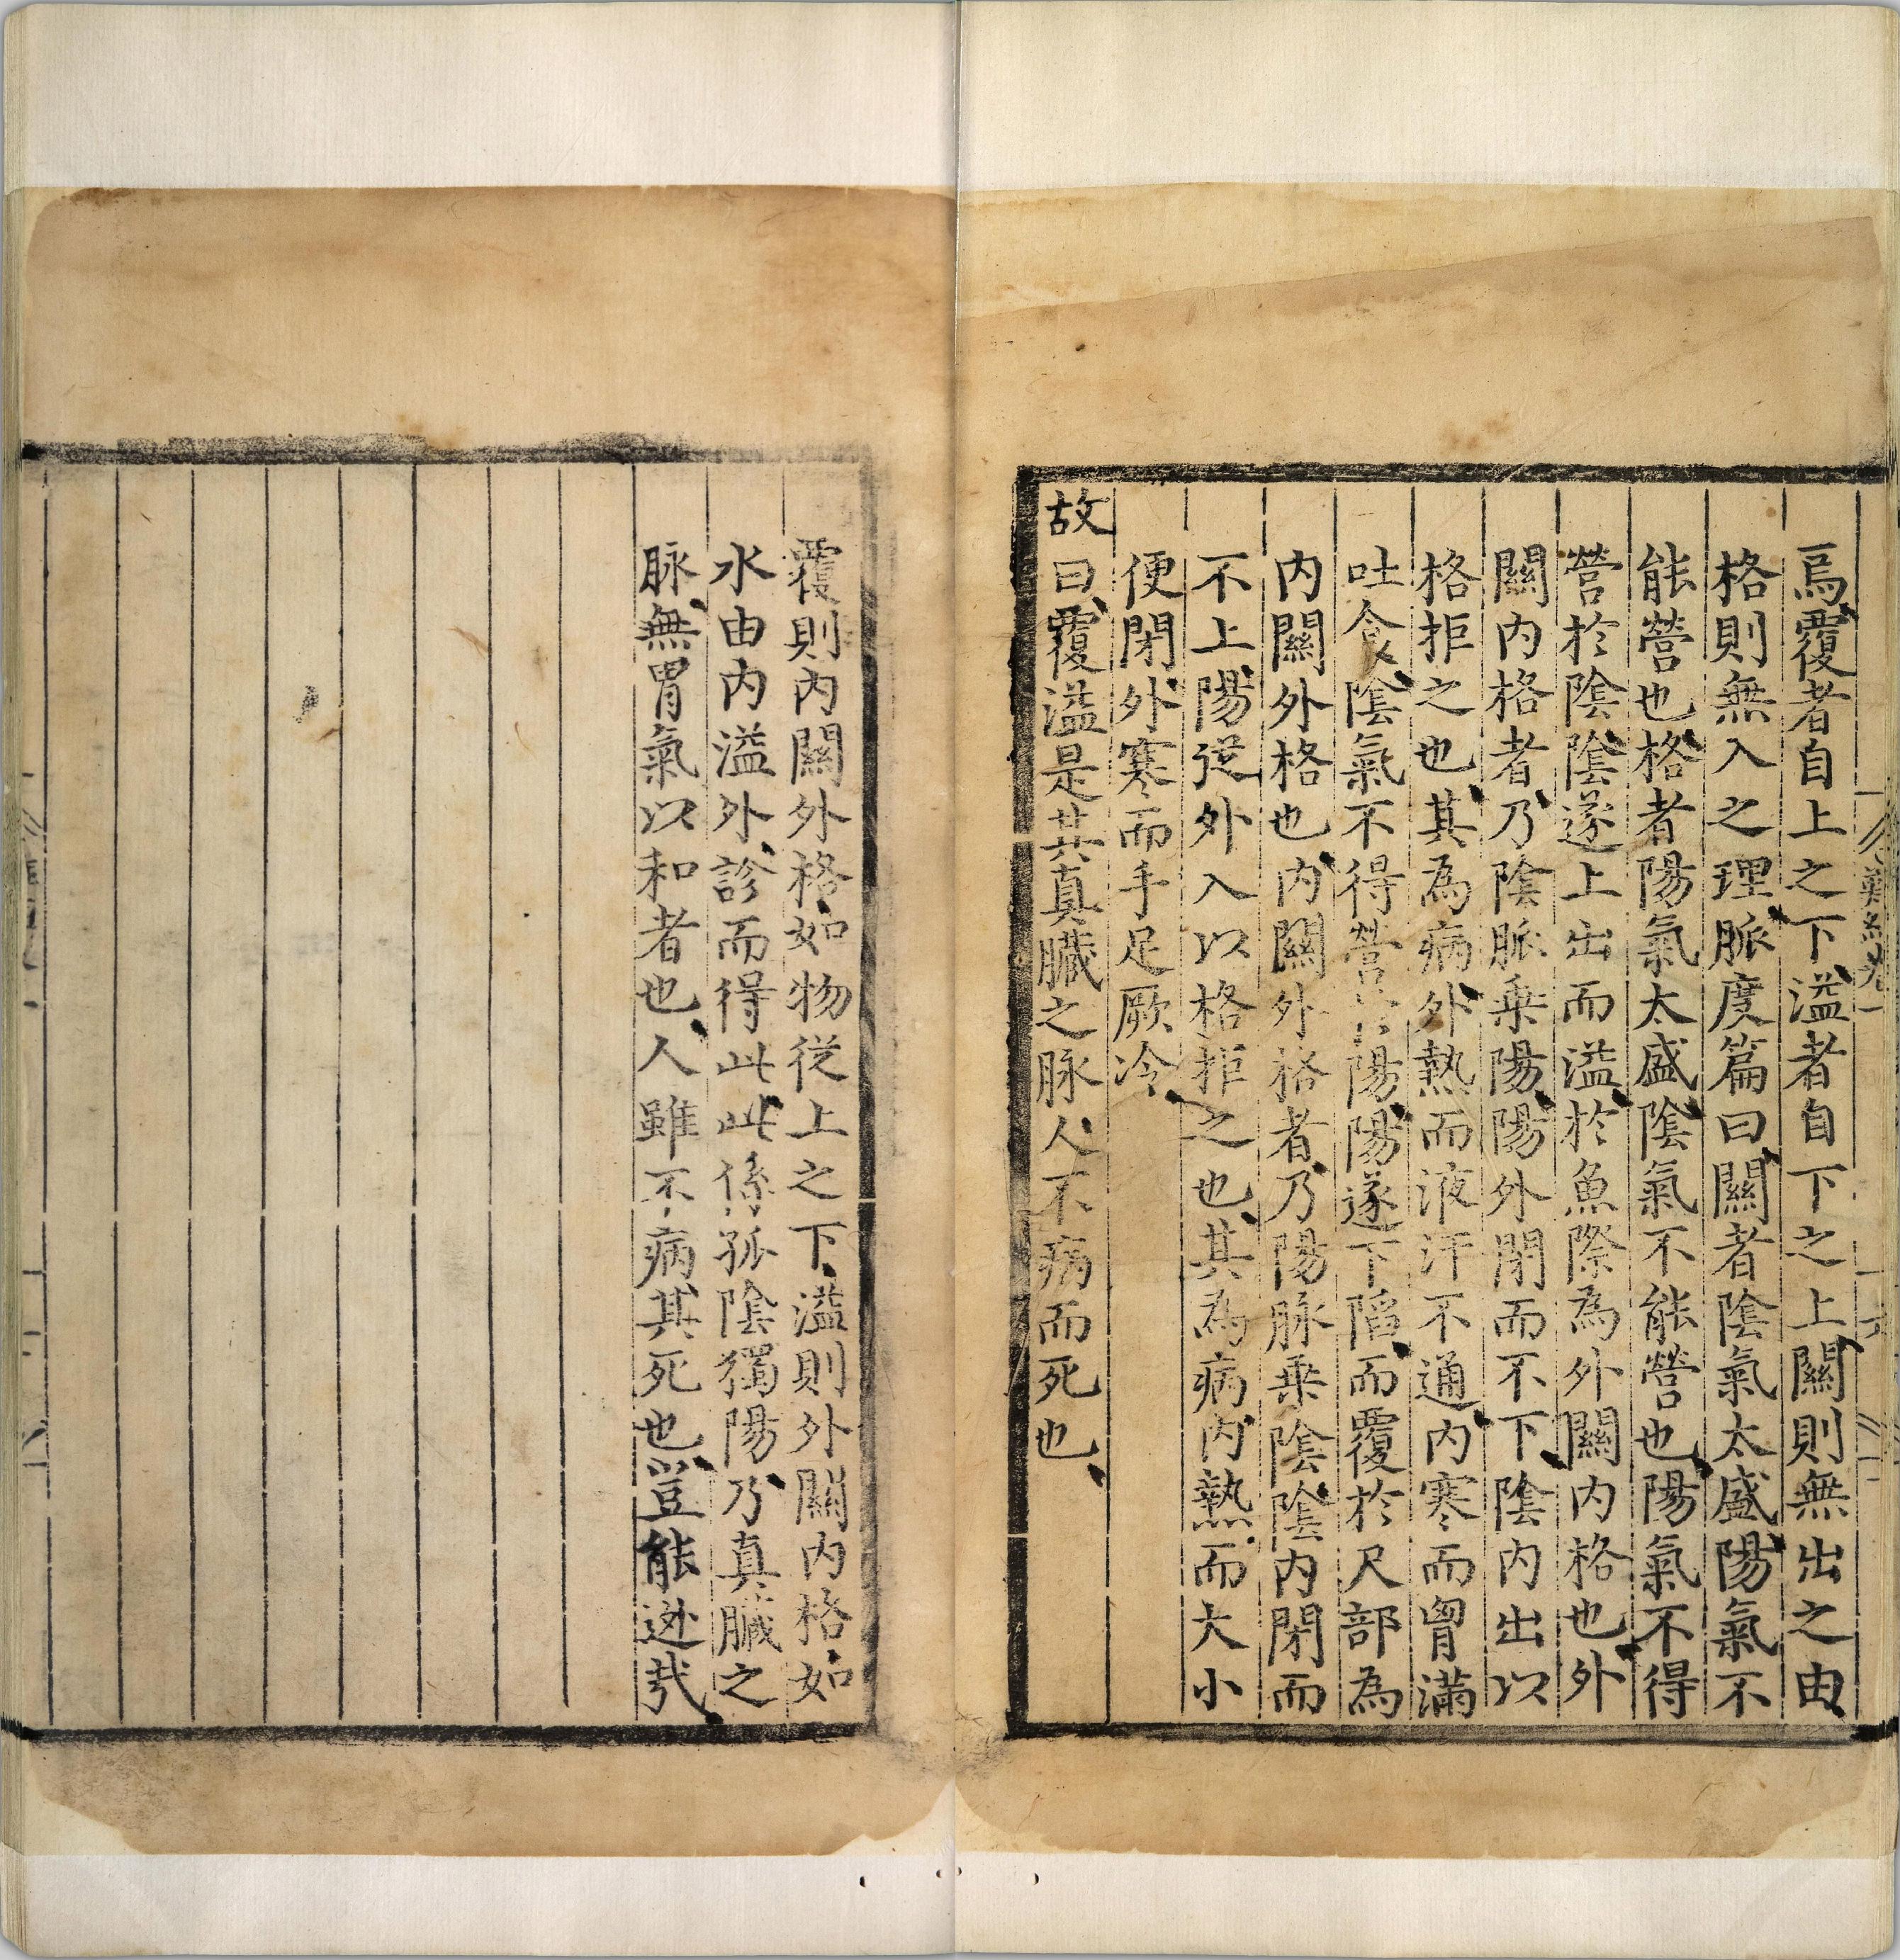 焉覆者自上之下溢者自下之上關則無出之由
格則無入之理脈度篇曰關者陰氣太盛陽氣不
能營也格者陽氣太盛陰氣不能營也陽氣不得
營於陰陰遂上出而溢於魚際為外關內格也外
關內格者乃陰脈乗陽陽外閉而不下陰內出以
格拒之也其為病外熱而液汗不通內寒而胷滿
吐食陰氣不得營於陽陽遂下䧟而覆於尺部為
內關外格也內關外格者乃陽脉乗陰陰內閉而
不上陽從外入以格拒之也其為病內熱而大小
便閉外寒而手足厥冷
故曰覆溢是其真臟之脉人不病而死也
覆則內關外格如物從上之下溢則外關內格如
水由內溢外診而得此此係孤陰獨陽乃真臟之
脉無胃氣以和者也人雖不病其死也豈能逃哉